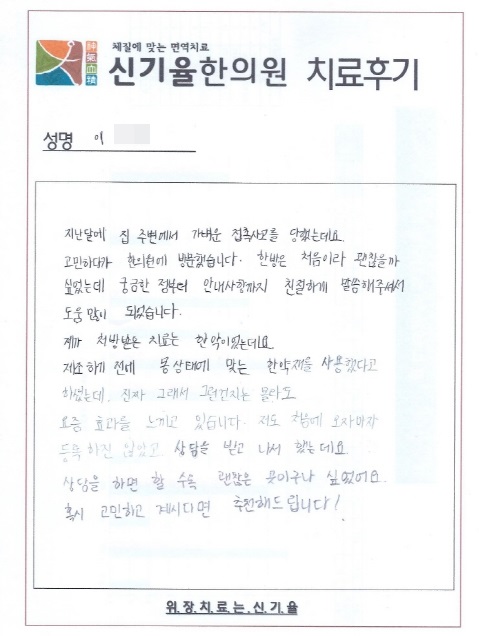 체질에 맞는 면역치료
신기율한의원 치료후기
성명 이
지난달에 집 주변에서 가벼운 접촉사고를 당했는데요.
고민하다가 한의원에 방문했습니다. 한방은 처음이라 괜찮을까
싶었는데 궁금한 점부터 안내사항까지 친절하게 말씀해주셔서
도움 많이 되었습니다.
제가 처방받은 치료는 한약이었는데요
제조하기 전에 몸상태에 맞는 한약재를 사용했다고
하셨는데, 진짜 그래서 그런건지는 몰라도
요즘 효과를 느끼고 있습니다. 저도 처음에 오자마자
등록하진 않았고 상담을 받고 나서 했는데요
상담을 하면 할 수록 괜찮은 곳이구나 싶었어요.
혹시 고민하고 계시다면 추천해드립니다!
위.장.치.료.는.신.기.율